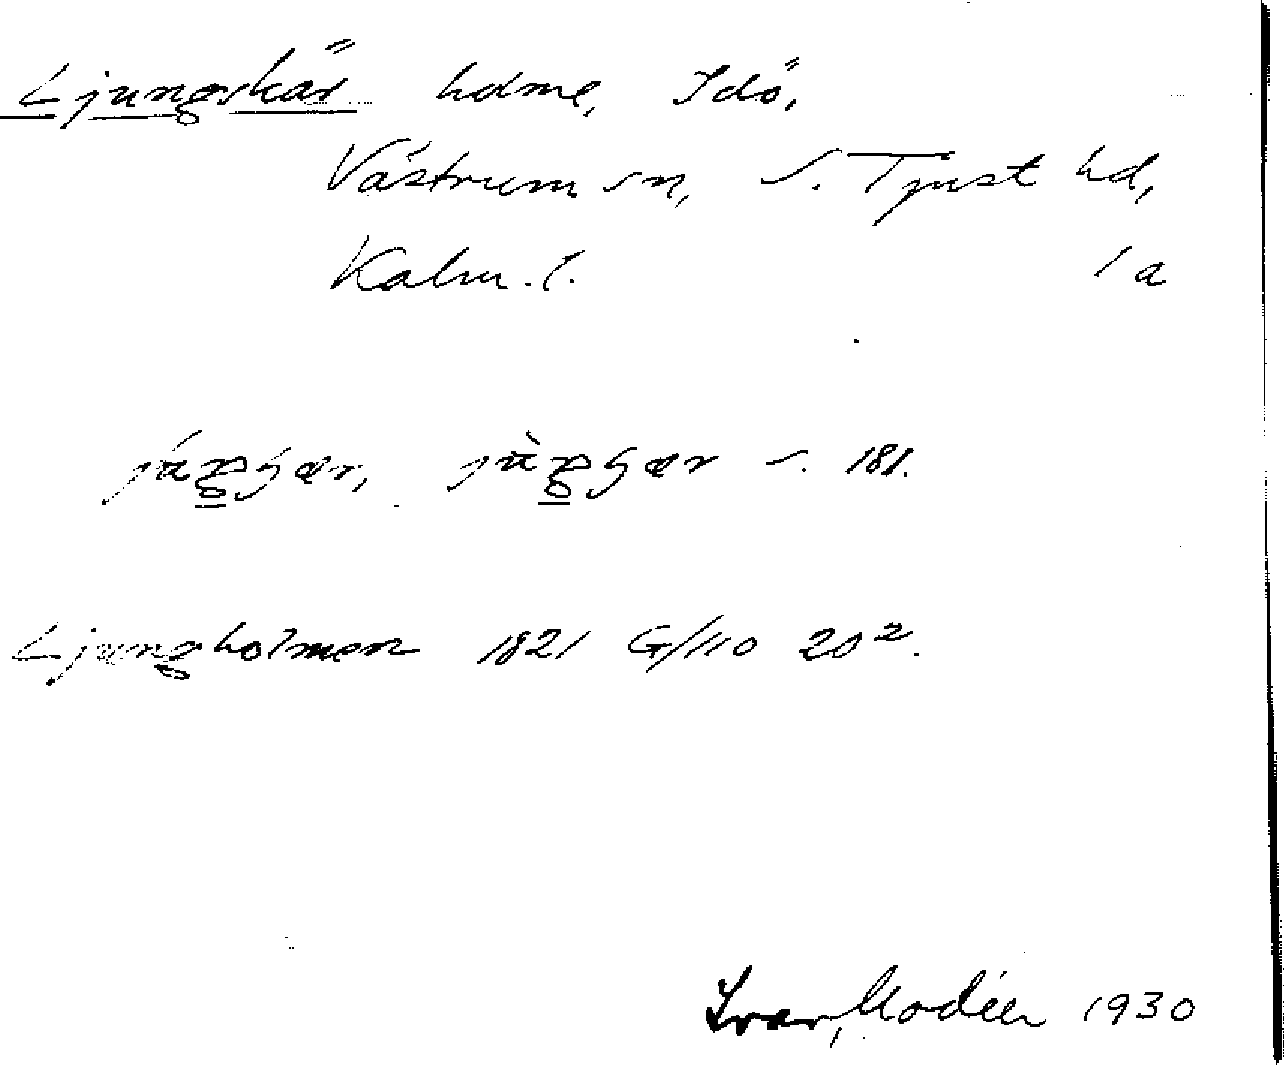 Ljungskär holme, Idö,
Västrum sn, S. Tjust hd,
Kalm. l. 1a
s. 181.
Ljungholmen 1821 G/110 20².
Ivar Modéer 1930